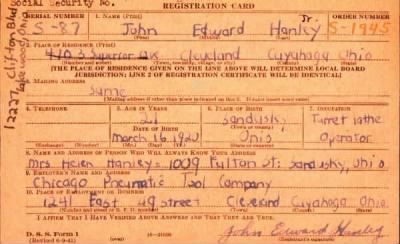 Social Security No.
REGISTRATION CARD
SERIAL NUMBER 1. NAME (Print) Jr ORDER NUMBER
S-87 John Edward Hanley S-1945
2. PLACE OF RESIDENCE (Print)
Superior Av Cleveland Cuyahoga Ohio
[THE PLACE OF RESIDENCE GIVEN ON THE LINE ABOVE WILL DETERMINE LOCAL BOARD
JURISDICTION; LINE 2 OF REGISTRATION CERTIFICATE WILL BE IDENTICAL]
12227 Clifton Blvd
Lakewood, Ohio
3. MAILING ADDRESS
Same
[Mailing address if other than place indicated on line 2. If same, insert word same]
4. TELEPHONE 5. AGE IN YEARS 6. PLACE OF BIRTH 7. OCCUPATION
21 Sandusky Turret lathe
DATE OF BIRTH
March 16, 1920 Ohio operator
8. NAME AND ADDRESS OF PERSON WHO WILL ALWAYS KNOW YOUR ADDRESS
Mrs Helen Hanley - 1009 Fulton St. Sandusky, Ohio
9. EMPLOYER'S NAME AND ADDRESS
Chicago Pneumatic Tool Company
10. PLACE OF EMPLOYMENT OR BUSINESS
1241 East 49 street Cleveland Cuyahoga Ohio
I AFFIRM THAT I HAVE VERIFIED ABOVE ANSWERS AND THAT THEY ARE TRUE.
D. S. S. Form 1
(Revised 6-9-41)
John Edward Hanley